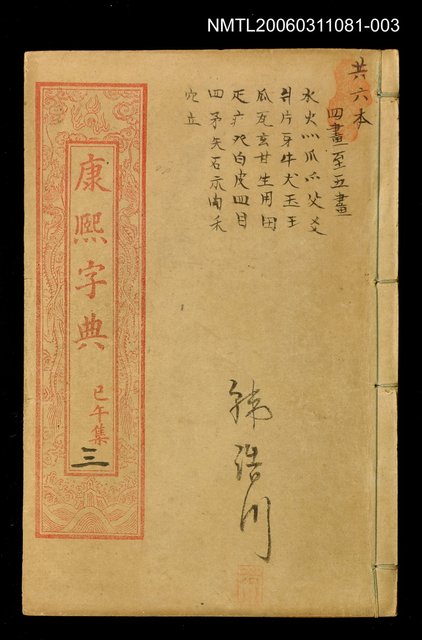 NMTL20060311081-003
共六本
四畫至五畫
水火灬爪爫父爻
爿片牙牛犬玉王
瓜瓦玄甘生用田
疋疒癶白皮皿目
罒矛矢石示禸禾
穴立
康熙字典
巳午集
三
浩川